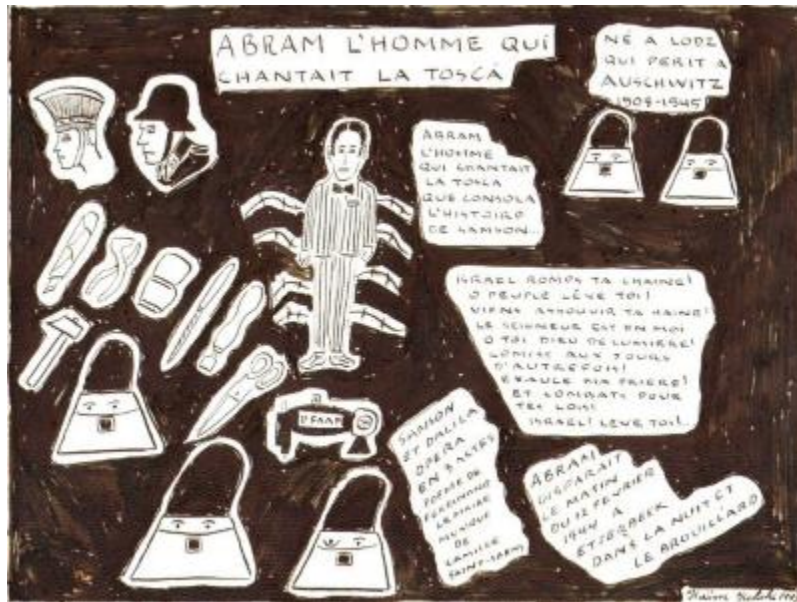 ABRAM L'HOMME QUI
CHANTAIT LA TOSCA
NÉ A LODZ
QUI PERIT A
AUSCHWITZ
1908-1945
ABRAM
L'HOMME
QUI CHANTAIT
LA TOSCA
QUE CONSOLA
L'HISTOIRE
DE SAMSON...
ISRAEL ROMPS TA CHAINE!
O PEUPLE LÈVE TOI!
VIENS ASSOUVIR TA HAINE!
LE SEIGNEUR EST EN MOI
O TOI DIEU DE LUMIERE!
COMME AUX JOURS
D'AUTREFOIS!
EXAULE MA PRIERE!
ET COMBATS POUR
TES LOIS!
ISRAEL! LEVE TOI!..
SAMSON
ET DALILA
OPERA
EN 3 ACTES
POEME DE
FERDINAND
LEMAIRE
MUSIQUE
DE
CAMILLE
SAINT-SAENS
ABRAM
DISPARAIT
LE MATIN
DU 12 FEVRIER
1944 A
ETTERBEEK
DANS LA NUIT ET
LE BROUILLARD